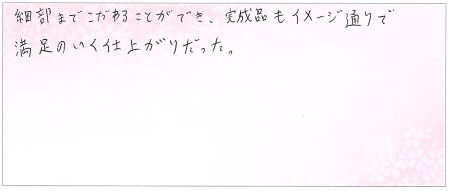 細部までこだわることができ、完成品もイメージ通りで
満足のいく仕上がりだった。